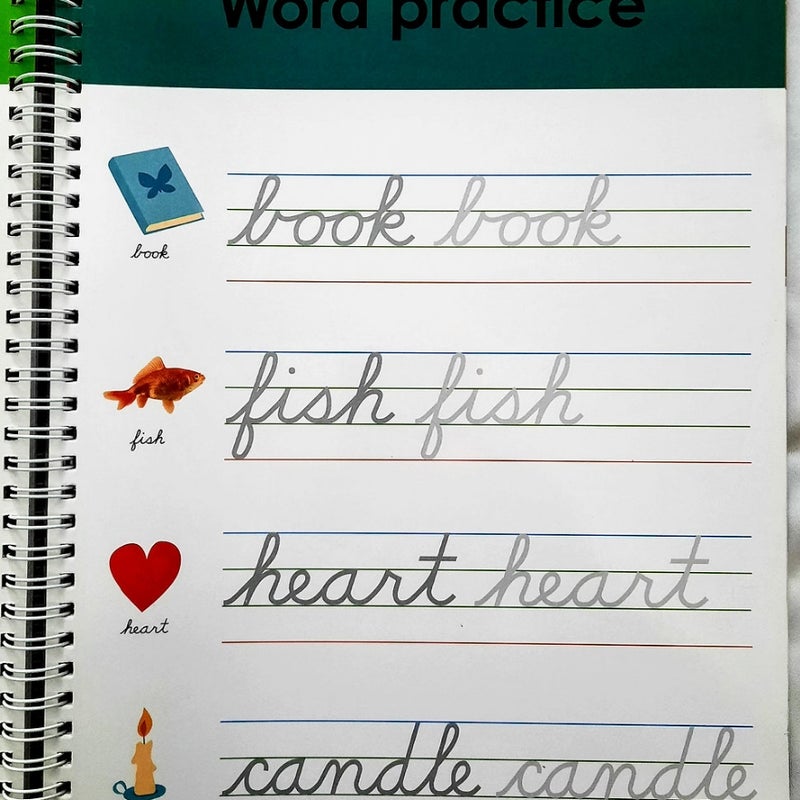 Word practice
book book
book
fish fish
fish
heart heart
heart
candle candle